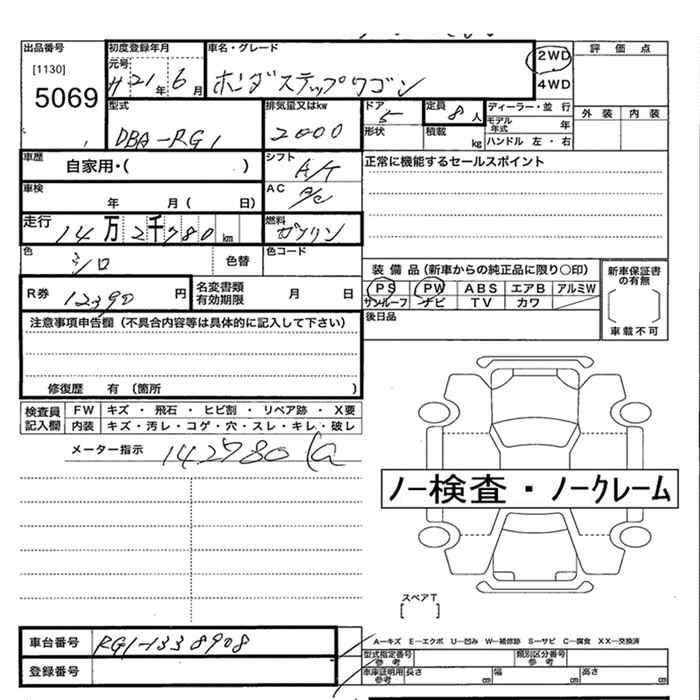 出品番号 初度登録年月 車名・グレード 2WD 評価点
[1130] 元号 H 21年 6月 ホンダステップワゴン 4WD
5069
型式 排気量又はkw ドア 定員 8人 ディーラー・並行 外装 内装
DBA-RG1 2000 5 モデル年式 年
形状 積載 kg ハンドル 左・右
車歴 自家用・( ) シフト A/T 正常に機能するセールスポイント
車検 年 月( 日) AC A/C
走行 14万2千780km 燃料 ガソリン
色 シロ 色替 色コード
装備品(新車からの純正品に限り○印) 新車保証書の有無
R券 12390円 名変書類有効期限 月 日 PS PW ABS エアB アルミW
サンルーフ ナビ TV カワ
[ ]
注意事項申告欄(不具合内容等は具体的に記入して下さい) 後日品 車載不可
修復歴 有(箇所 )
検査員記入欄 FW キズ・飛石・ヒビ割・リペア跡・X要
内装 キズ・汚レ・コゲ・穴・スレ・キレ・破レ
メーター指示 142780
ノー検査・ノークレーム
スペアT
[ ]
車台番号 RG1-1338908 A—キズ E—エクボ U—凹み W—補修跡 S—サビ C—腐食 XX—交換済
型式指定番号 参考 類別区分番号 参考
登録番号 車庫証明用 参考 長さ cm 幅 cm 高さ cm